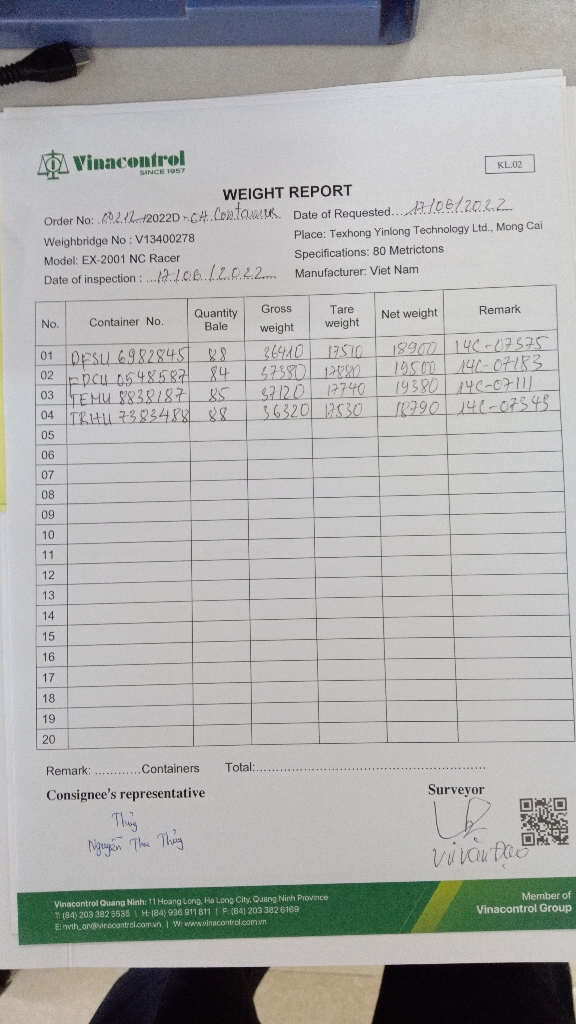 Vinacontrol
SINCE 1957
KL.02
WEIGHT REPORT
Order No: 00212/2022D - CH Container Date of Requested....17/06/2022
Weighbridge No : V13400278 Place: Texhong Yinlong Technology Ltd., Mong Cai
Model: EX-2001 NC Racer Specifications: 80 Metrictons
Date of inspection : ...17/06/2022.... Manufacturer: Viet Nam
No. Container No. Quantity Bale Gross weight Tare weight Net weight Remark
01 DFSU 6982845 88 36410 17510 18900 14C-07375
02 FDCU 0548587 84 37380 17880 19500 14C-07183
03 TEMU 8838187 85 37120 17740 19380 14C-07111
04 TRHU 7383488 88 36320 17530 18790 14C-07349
05
06
07
08
09
10
11
12
13
14
15
16
17
18
19
20
Remark: ............Containers Total:..........................................................
Consignee's representative Surveyor
Thủy
Nguyễn Thu Thủy
Vi Văn Đạo
Vinacontrol Quang Ninh: 11 Hoang Long, Ha Long City, Quang Ninh Province
T: (84) 203 382 5535 | H: (84) 936 911 811 | F: (84) 203 382 6169
E: nvth_qn@vinacontrol.com.vn | W: www.vinacontrol.com.vn
Member of
Vinacontrol Group